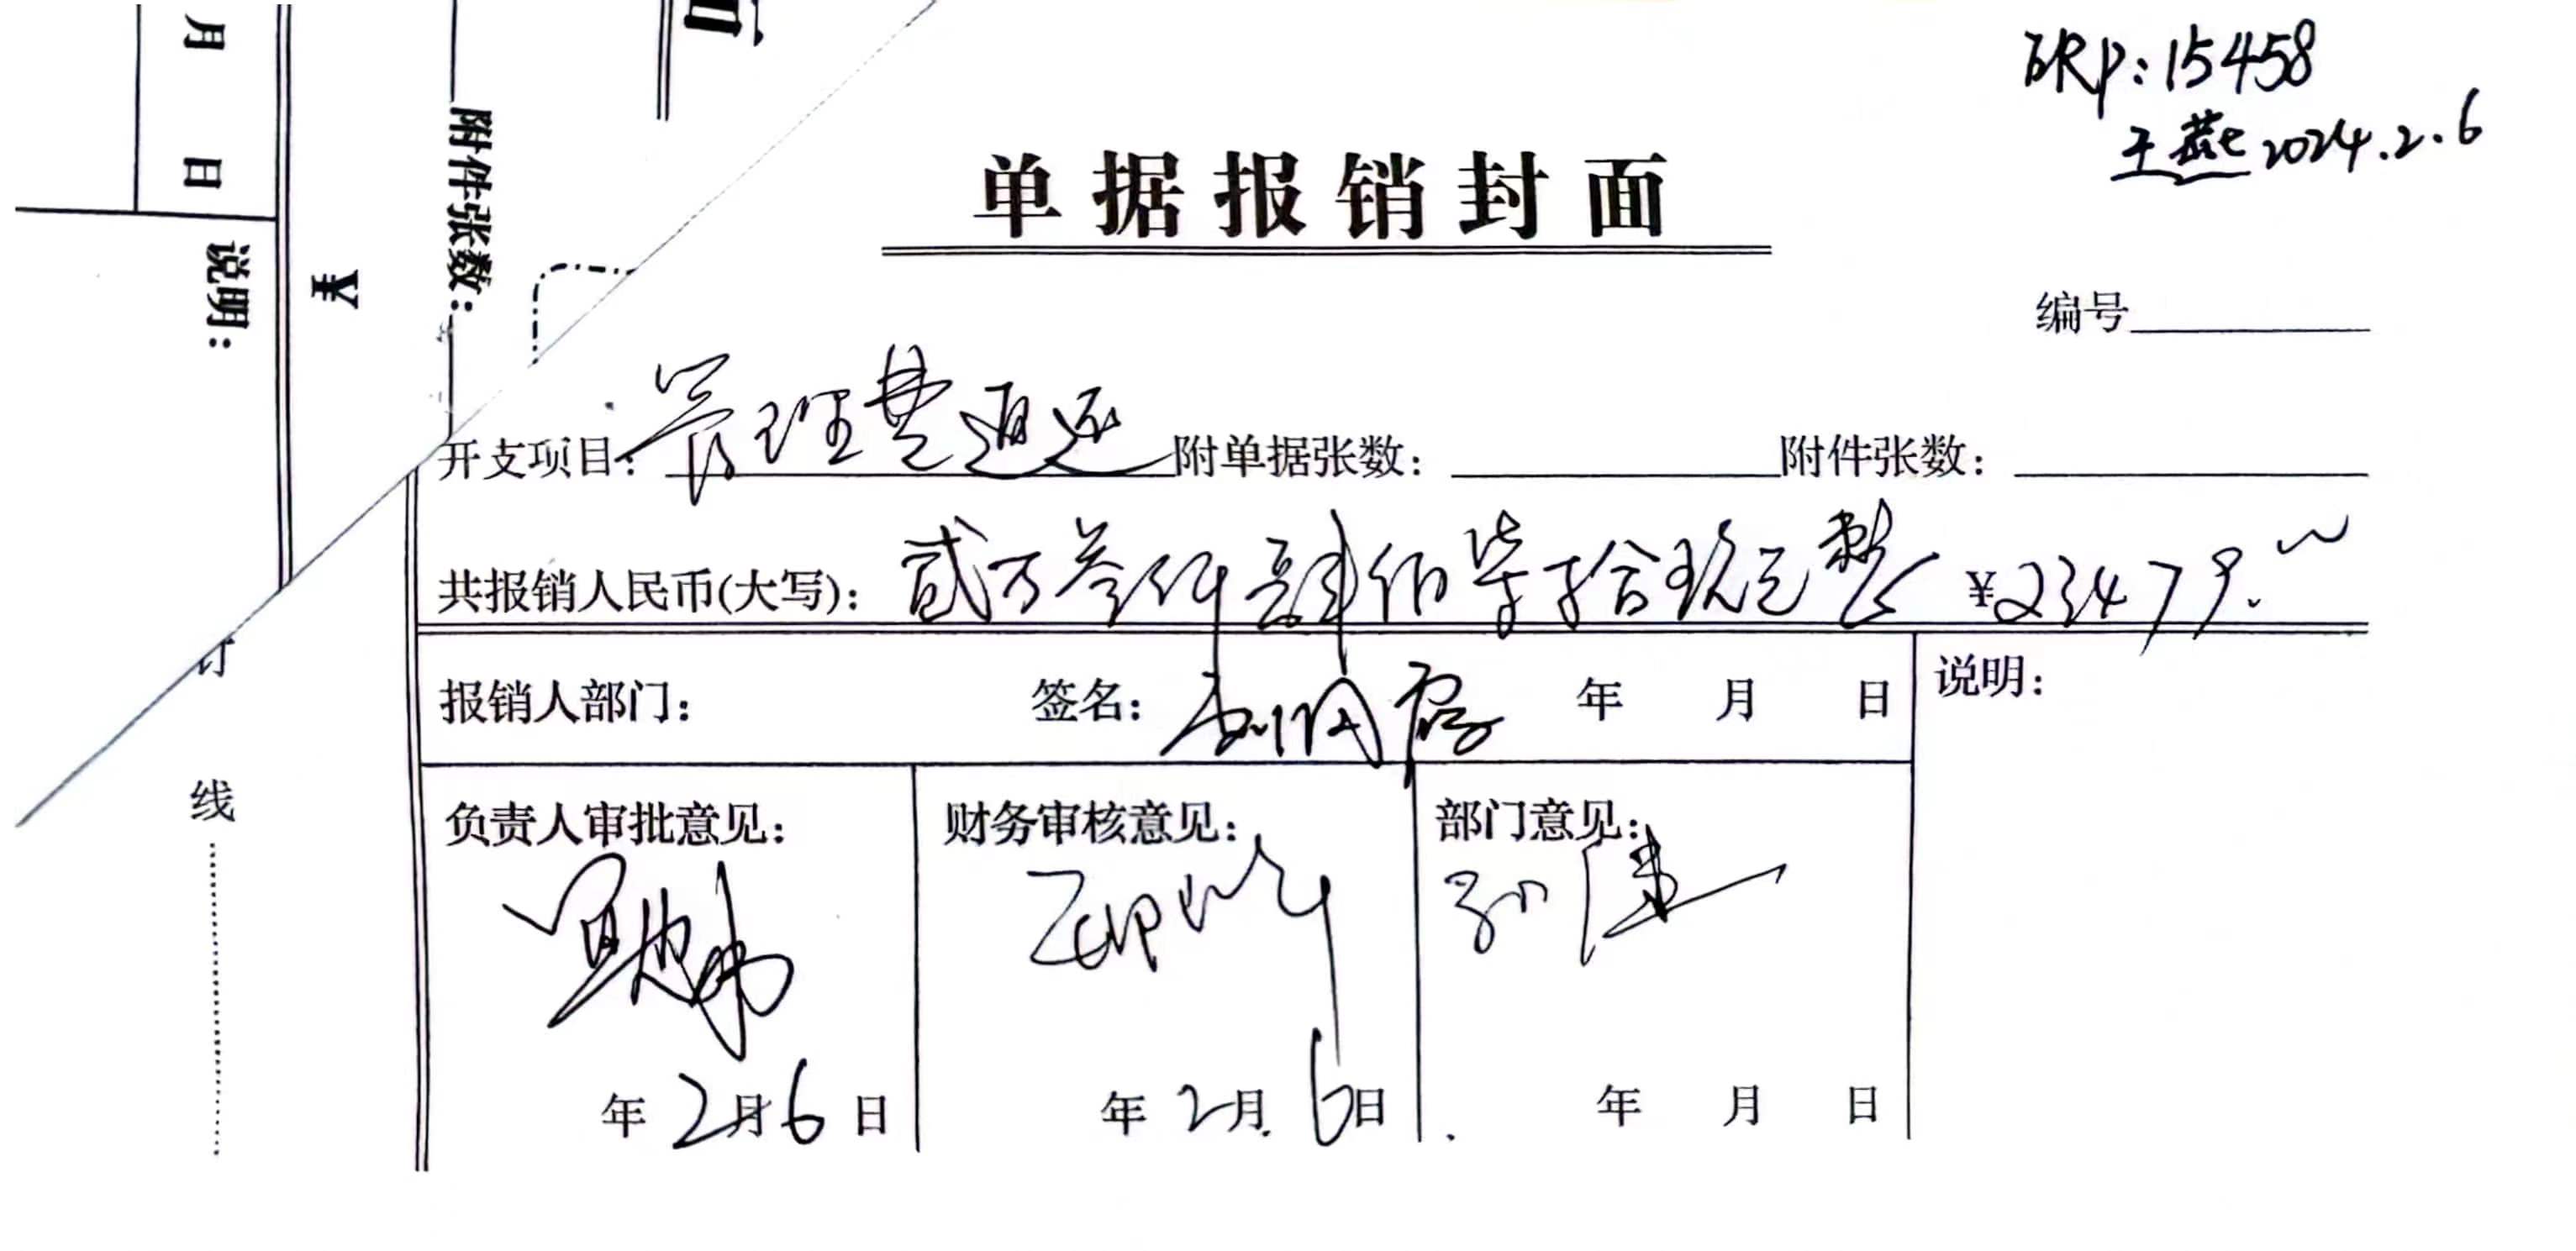 ERP:15458
王燕 2024.2.6
单据报销封面
编号
开支项目:管理费返还 附单据张数: 附件张数:
共报销人民币(大写):贰万叁仟肆佰柒拾玖元整 ¥23479.
报销人部门: 签名: 年 月 日 说明:
负责人审批意见: 财务审核意见: 部门意见:
孙建
年 2月6日 年 2月6日 年 月 日
月 日
说明:
¥
附件张数:
面
订
线